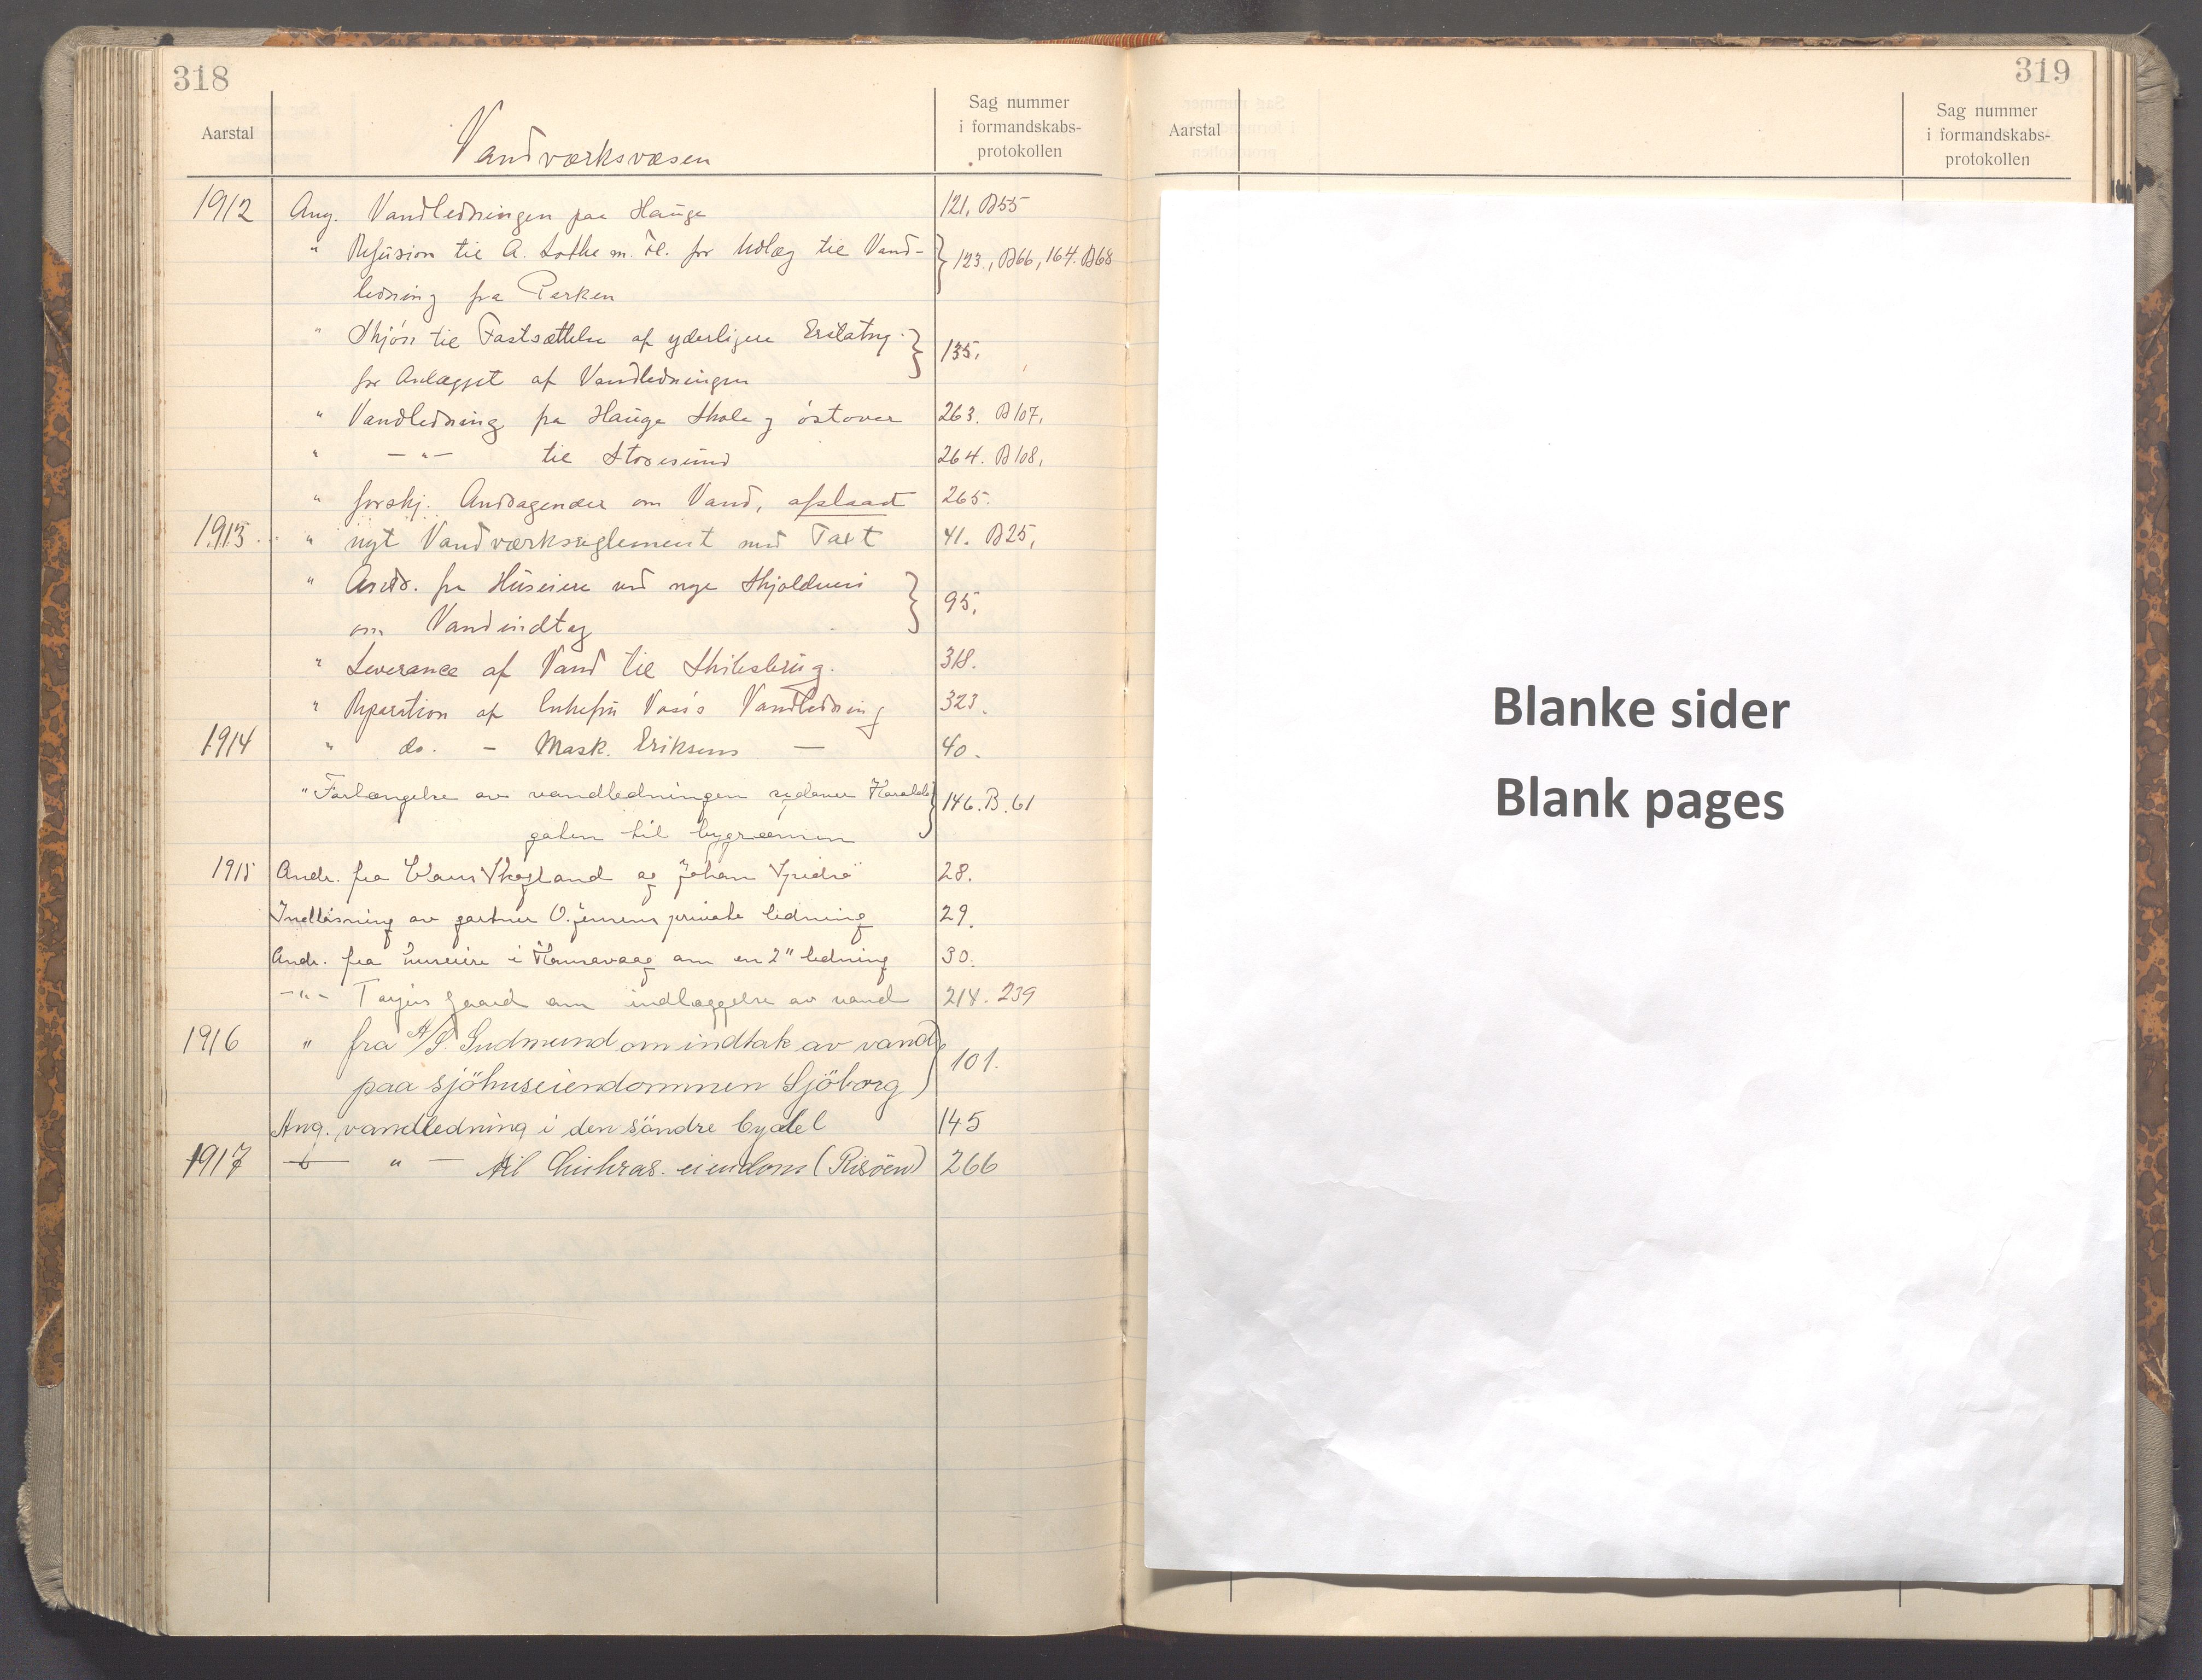 318
Aarstal
Vandværksvæsen
Sag nummer
i formandskabs-
protokollen
1912 Ang. Vandledningen paa Hauge 121, B55
" Refusion til A. Lothe m. Fl. for Udlæg til Vand- 123., B66, 164. B68
ledning fra Parken
" Skjøn til Fastsættelse af yderligere Erstatng. 135.
for Anlægget af Vandledningen
" Vandledning fra Hauge Skole og östover 263. B107,
" — " — til Storesund 264. B108,
" forskj. Andragender om Vand, afslaaet 265.
1913 " nyt Vandværksreglement med Taxt 41. B25,
" Andr. fra Huseiere ved nye Skjoldvei 95.
om Vandindtag
" Leverance af Vand til Skibsbrug. 318.
" Reparation af Enkefru Vases Vandledning 323.
1914 " do. — Mask. Eriksens — 40.
" Forlængelse av vandledningen nedover Haralds 146. B. 61
gaten til bygrænsen
1915 Andr. fra Claus Skogland og Johan 28.
Indløsning av gartner O. Jensens private ledning 29.
Andr. fra huseiere i Hasseavaag om en 2" ledning 30.
— " — Gaard om indlæggelse av vand 214. 239
1916 " fra A/S. Gudmund om indtak av vand 101.
paa sjöhuseiendommen Sjöborg
Ang. vandledning i den söndre bydel 145
1917 — " — til eiendom (Risöen) 266
319
Aarstal
Sag nummer
i formandskabs-
protokollen
Blanke sider
Blank pages